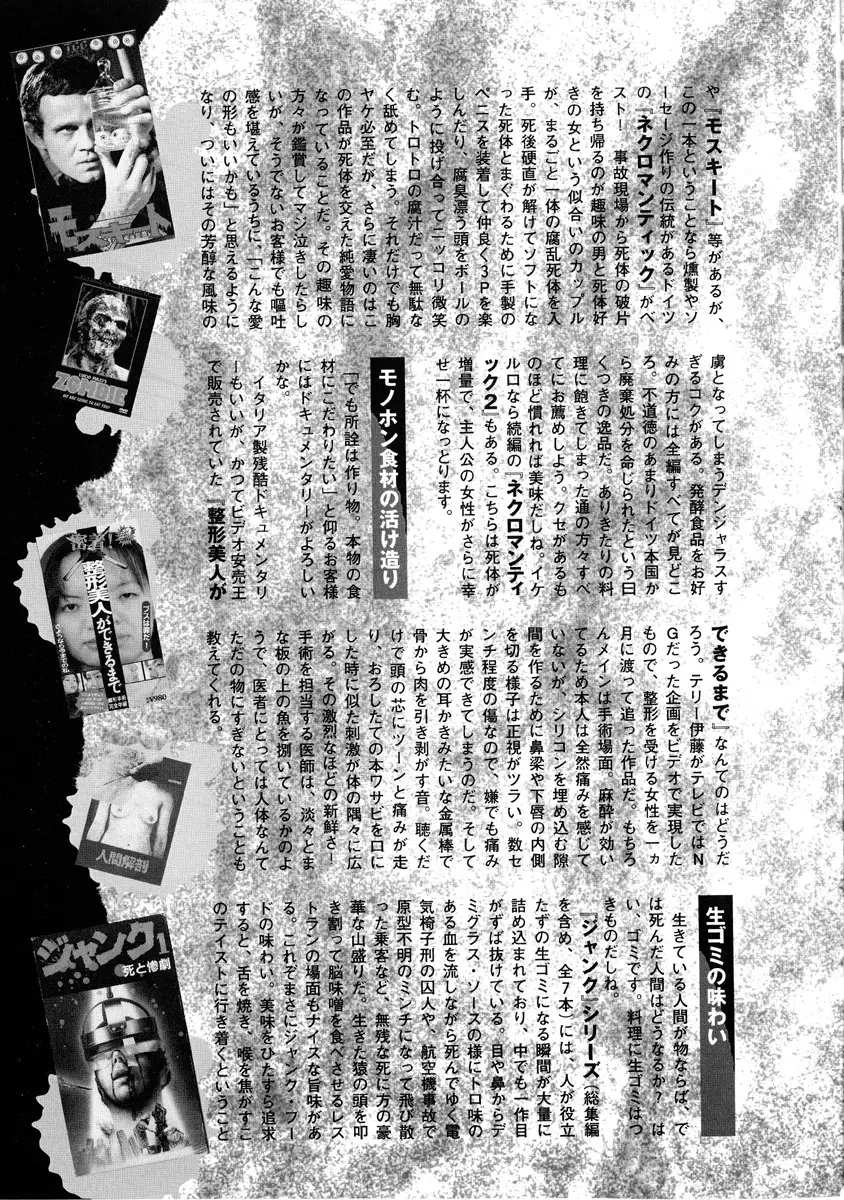 や『モスキート』等があるが、
この一本ということなら燻製やソ
ーセージ作りの伝統があるドイツ
の『ネクロマンティック』がべ
スト！　事故現場から死体の破片
を持ち帰るのが趣味の男と死体好
きの女という似合いのカップル
が、まるごと一体の腐乱死体を入
手。死後硬直が解けてソフトにな
った死体とまぐわるために手製の
ペニスを装着して仲良く3Pを楽
しんだり、腐臭漂う頭をボールの
ように投げ合ってニッコリ微笑
む。トロトロの腐汁だって無駄な
く舐めてしまう。それだけでも胸
ヤケ必至だが、さらに凄いのはこ
の作品が死体を交えた純愛物語に
なっていることだ。その趣味の
方々が鑑賞してマジ泣きしたらし
いが、そうでないお客様でも嘔吐
感を堪えているうちに、「こんな愛
の形もいいかも」と思えるように
なり、ついにはその芳醇な風味の
虜となってしまうデンジャラスす
ぎるコクがある。発酵食品をお好
みの方には全編すべてが見どこ
ろ。不道徳のあまりドイツ本国か
ら廃棄処分を命じられたという曰
くつきの逸品だ。ありきたりの料
理に飽きてしまった通の方々すべ
てにお薦めしよう。クセがあるも
のほど慣れれば美味だしね。イケ
ルロなら続編の『ネクロマンティ
ック2』もある。こちらは死体が
増量で、主人公の女性がさらに幸
せ一杯になっとります。
モノホン食材の活け造り
「でも所詮は作り物。本物の食
材にこだわりたい」と仰るお客様
にはドキュメンタリーがよろしい
かな。
イタリア製残酷ドキュメンタリ
ーもいいが、かつてビデオ安売王
で販売されていた『整形美人が
できるまで』なんてのはどうだ
ろう。テリー伊藤がテレビではN
Gだった企画をビデオで実現した
もので、整形を受ける女性を一ヵ
月に渡って追った作品だ。もちろ
んメインは手術場面。麻酔が効い
てるため本人は全然痛みを感じて
いないが、シリコンを埋め込む隙
間を作るために鼻梁や下唇の内側
を切る様子は正視がツラい。数セ
ンチ程度の傷なので、嫌でも痛み
が実感できてしまうのだ。そして
大きめの耳かきみたいな金属棒で
骨から肉を引き剥がす音。聴くだ
けで頭の芯にツーンと痛みが走
り、おろしたての本ワサビを口に
した時に似た刺激が体の隅々に広
がる。その激烈なほどの新鮮さ！
手術を担当する医師は、淡々とま
な板の上の魚を捌いているかのよ
うで、医者にとっては人体なんて
ただの物にすぎないということも
教えてくれる。
生ゴミの味わい
生きている人間が物ならば、で
は死んだ人間はどうなるか？　は
い、ゴミです。料理に生ゴミはつ
きものだしね。
『ジャンク』シリーズ（総集編
を含め、全7本）には、人が役立
たずの生ゴミになる瞬間が大量に
詰め込まれており、中でも一作目
がずば抜けている。目や鼻からデ
ミグラス・ソースの様にトロ味の
ある血を流しながら死んでゆく電
気椅子刑の囚人や、航空機事故で
原型不明のミンチになって飛び散
った乗客など、無残な死に方の豪
華な山盛りだ。生きた猿の頭を叩
き割って脳味噌を食べさせるレス
トランの場面もナイスな旨味があ
る。これぞまさにジャンク・フー
ドの味わい。美味をひたすら追求
すると、舌を焼き、喉を焦がすこ
のテイストに行き着くということ
モスキート
ZOMBIE
WE ARE GOING TO EAT YOU!
整形美人ができるまで
ブスは罪だ！
¥980
人間解剖
ジャンク1
死と惨劇